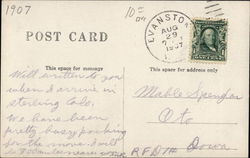 1907
10¢
EVANSTON
AUG
29
1907
POST CARD
This space for message
This space for address only
Will write to you
when I arrive in
Sterling Colo.
We have been
pretty busy packing
for the move. I will
Mable Spencer
Oto
Iowa